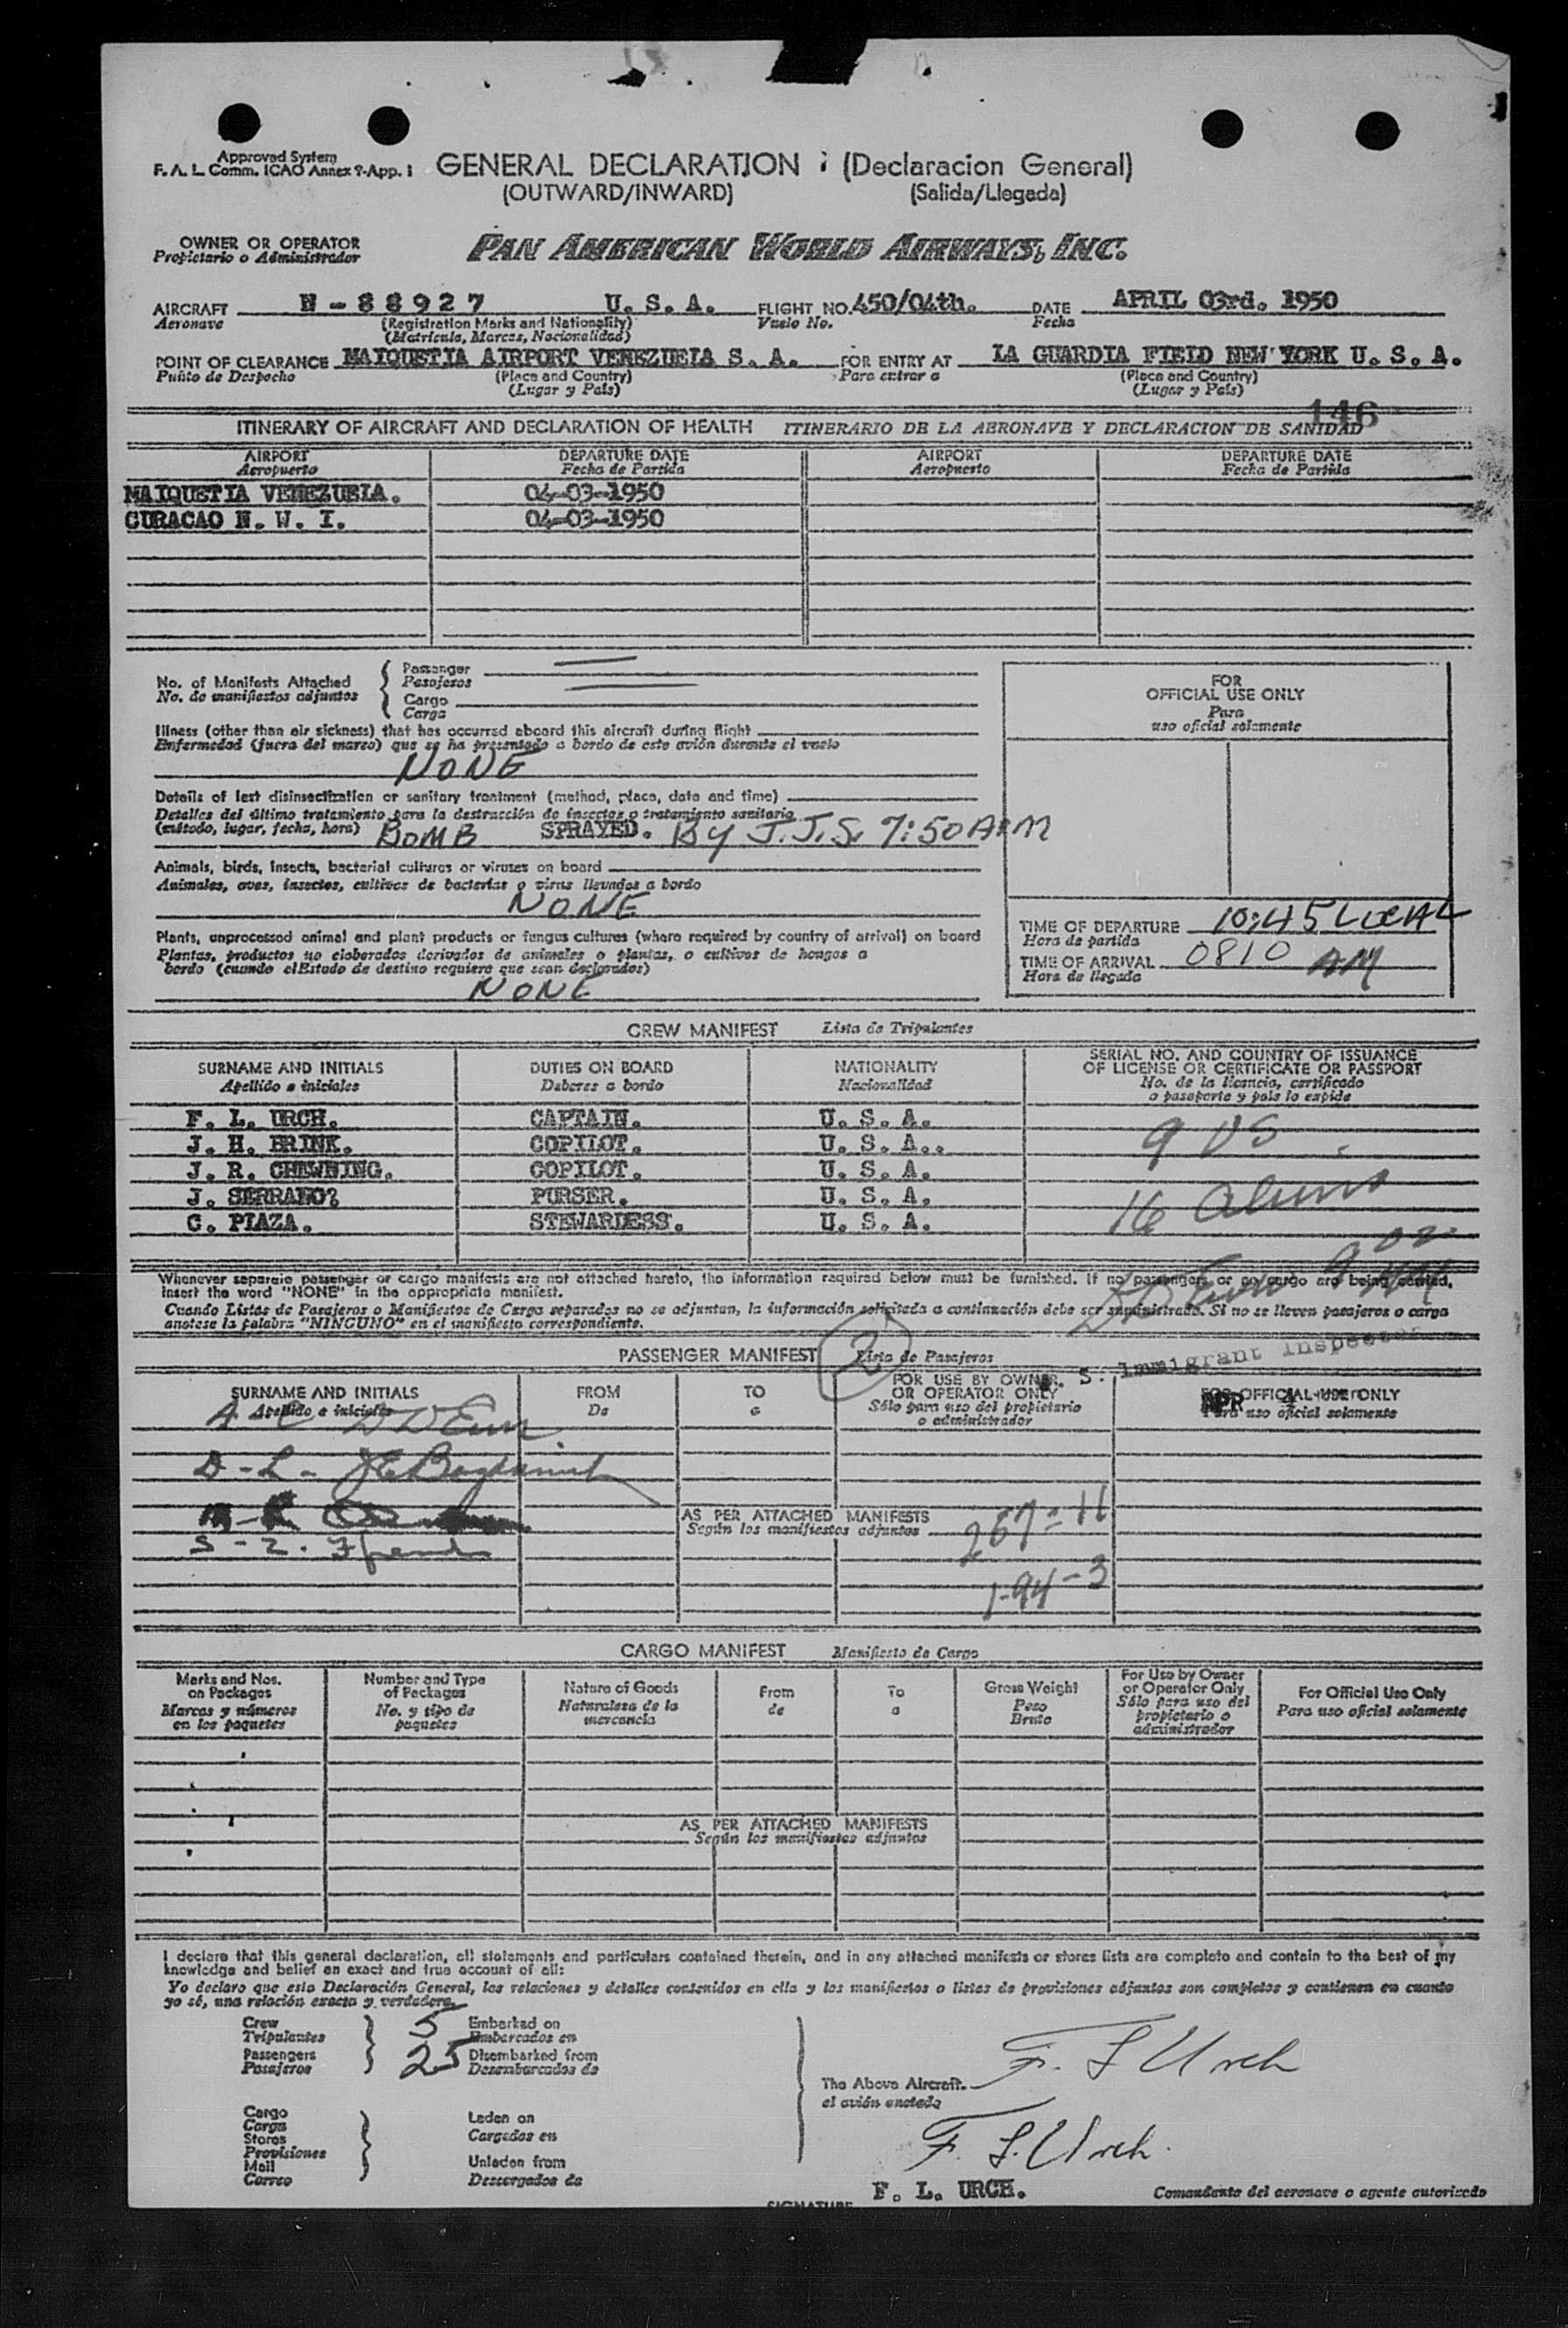 Approved System
F. A. L. Comm. ICAO Annex 9-App. 1
GENERAL DECLARATION (Declaracion General)
(OUTWARD/INWARD) (Salida/Llegada)
OWNER OR OPERATOR
Propietario o Administrador
PAN AMERICAN WORLD AIRWAYS, INC.
AIRCRAFT N-88927 U. S. A. FLIGHT NO. 450/04th. DATE APRIL 03rd. 1950
Aeronave (Registration Marks and Nationality) Vuelo No. Fecha
(Matricula, Marcas, Nacionalidad)
POINT OF CLEARANCE MAIQUETIA AIRPORT VENEZUELA S. A. FOR ENTRY AT LA GUARDIA FIELD NEW YORK U. S. A.
Punto de Despacho (Place and Country) Para entrar a (Place and Country)
(Lugar y País) (Lugar y País)
146
ITINERARY OF AIRCRAFT AND DECLARATION OF HEALTH ITINERARIO DE LA AERONAVE Y DECLARACION DE SANIDAD
AIRPORT DEPARTURE DATE AIRPORT DEPARTURE DATE
Aeropuerto Fecha de Partida Aeropuerto Fecha de Partida
MAIQUETIA VENEZUELA. 04-03-1950
CURACAO N. W. I. 04-03-1950
No. of Manifests Attached
No. de manifiestos adjuntos
Passenger
Pasajeros
Cargo
Carga
Illness (other than air sickness) that has occurred aboard this aircraft during flight
Enfermedad (fuera del mareo) que se ha presentado a bordo de este avión durante el vuelo
NONE
Details of last disinsectization or sanitary treatment (method, place, date and time)
Detalles del último tratamiento para la destrucción de insectos o tratamiento sanitario
(método, lugar, fecha, hora) BOMB SPRAYED. By J.J.S. 7:50 AM
Animals, birds, insects, bacterial cultures or viruses on board
Animales, aves, insectos, cultivos de bacterias o virus llevados a bordo
NONE
Plants, unprocessed animal and plant products or fungus cultures (where required by country of arrival) on board
Plantas, productos no elaborados derivados de animales o plantas, o cultivos de hongos a
bordo (cuando el Estado de destino requiera que sean declarados)
NONE
FOR
OFFICIAL USE ONLY
Para
uso oficial solamente
TIME OF DEPARTURE 10:45 LOCAL
Hora de partida
TIME OF ARRIVAL 0810 AM
Hora de llegada
CREW MANIFEST Lista de Tripulantes
SURNAME AND INITIALS DUTIES ON BOARD NATIONALITY SERIAL NO. AND COUNTRY OF ISSUANCE
OF LICENSE OR CERTIFICATE OR PASSPORT
Apellido e iniciales Deberes a bordo Nacionalidad No. de la licencia, certificado
o pasaporte y país lo expide
F. L. URCH. CAPTAIN. U. S. A.
J. H. BRINK. COPILOT. U. S. A..
J. R. CHEWNING. COPILOT. U. S. A.
J. SERRANO? PURSER. U. S. A.
C. PLAZA. STEWARDESS. U. S. A.
9 US
16 Aliens
Whenever separate passenger or cargo manifests are not attached hereto, the information required below must be furnished. If no passengers or no cargo are being carried,
insert the word "NONE" in the appropriate manifest.
Cuando Listas de Pasajeros o Manifiestos de Carga separados no se adjuntan, la información solicitada a continuación debe ser suministrada. Si no se lleven pasajeros o carga
anotese la palabra "NINGUNO" en el manifiesto correspondiente.
PASSENGER MANIFEST 2 Lista de Pasajeros
S. Immigrant Inspector
SURNAME AND INITIALS FROM TO FOR USE BY OWNER
OR OPERATOR ONLY FOR OFFICIAL USE ONLY
Apellido e iniciales De a Sólo para uso del propietario
o administrador Para uso oficial solamente
APR 4
AS PER ATTACHED MANIFESTS
Según los manifiestos adjuntos
267-11
1-94-3
CARGO MANIFEST Manifiesto de Cargo
Marks and Nos.
on Packages
Marcas y números
en los paquetes
Number and Type
of Packages
No. y tipo de
paquetes
Nature of Goods
Naturaleza de la
mercancía
From
de
To
a
Gross Weight
Peso
Bruto
For Use by Owner
or Operator Only
Sólo para uso del
propietario o
administrador
For Official Use Only
Para uso oficial solamente
AS PER ATTACHED MANIFESTS
Según los manifiestos adjuntos
I declare that this general declaration, all statements and particulars contained therein, and in any attached manifests or stores lists are complete and contain to the best of my
knowledge and belief an exact and true account of all:
Yo declaro que esta Declaración General, las relaciones y detalles contenidos en ella y los manifiestos o listas de provisiones adjuntos son completos y contienen en cuanto
yo sé, una relación exacta y verdadera.
Crew 5 Embarked on
Tripulantes Embarcados en
Passengers 25 Disembarked from
Pasajeros Desembarcados de
The Above Aircraft. F. L Urch
el avión anotado
Cargo
Carga
Stores
Provisiones
Mail
Correo
Laden on
Cargados en
Unladen from
Descargados de
F. L. Urch.
F. L. URCH.
SIGNATURE
Comandante del aeronave o agente autorizado